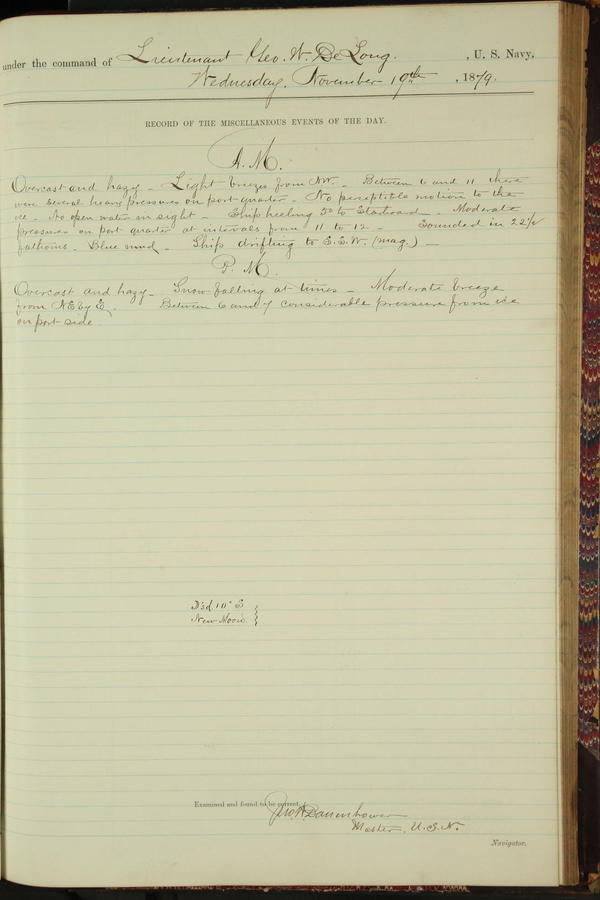 under the command of Lieutenant Geo. W. De Long. , U. S. Navy,
Wednesday, November 19th , 1879.
RECORD OF THE MISCELLANEOUS EVENTS OF THE DAY.
A. M.
Overcast and hazy - Light breezes from NW. - Between 6 and 11 there
were several heavy pressures on port quarter - No perceptible motion to the
ice - No open water in sight - Ship heeling 5° to Starboard - Moderate
pressures on port quarter at intervals from 11 to 12 - Sounded in 22½
fathoms - Blue mud - Ship drifting to S.S.W. (mag.) -
P. M.
Overcast and hazy - Snow falling at times - Moderate breeze
from NE by E. Between 6 and 7 considerable pressure from ice
on port side.
New Moon.
Examined and found to be correct.
Jno. W. Danenhower
Master, U.S.N.
Navigator.